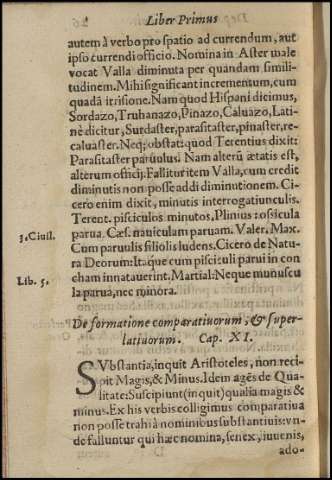 Liber Primus
autem à verbo pro spatio ad currendum, aut
ipso currendi officio. Nomina in Aster male
vocat Valla diminuta per quandam simili-
tudinem. Mihi significant incrementum, cum
quadã irrisione. Nam quod Hispani dicimus,
Sordazo, Truhanazo, Pinazo, Caluazo, Lati-
nè dicitur, Surdaster, parasitaster, pinaster, re-
caluaster. Neq; obstat: quod Terentius dixit:
Parasitaster paruulus. Nam alterũ ætatis est,
alterum officij. Fallitur item Valla, cum credit
diminutis non posse addi diminutionem. Ci-
cero enim dixit, minutis interrogatiunculis.
Terent. pisciculos minutos, Plinius: ossicula
parua. Cæs. nauiculam paruam. Valer. Max.
3. Ciuil.
Cum paruulis filiolis ludens. Cicero de Natu-
ra Deorum: Itaque cum pisciculi parui in con
cham innatauerint. Martial: Neque munuscu
Lib. 5.
la parua, nec minora.
De formatione comparatiuorum, & super-
latiuorum. Cap. XI.
SVbstantia, inquit Aristoteles, non reci-
pit Magis, & Minus. Idem agẽs de Qua-
litate: Suscipiunt (inquit) qualia magis &
minus. Ex his verbis colligimus comparatiua
non posse trahi à nominibus substantiuis: vn-
de falluntur qui hæc nomina, senex, iuuenis,
ado-